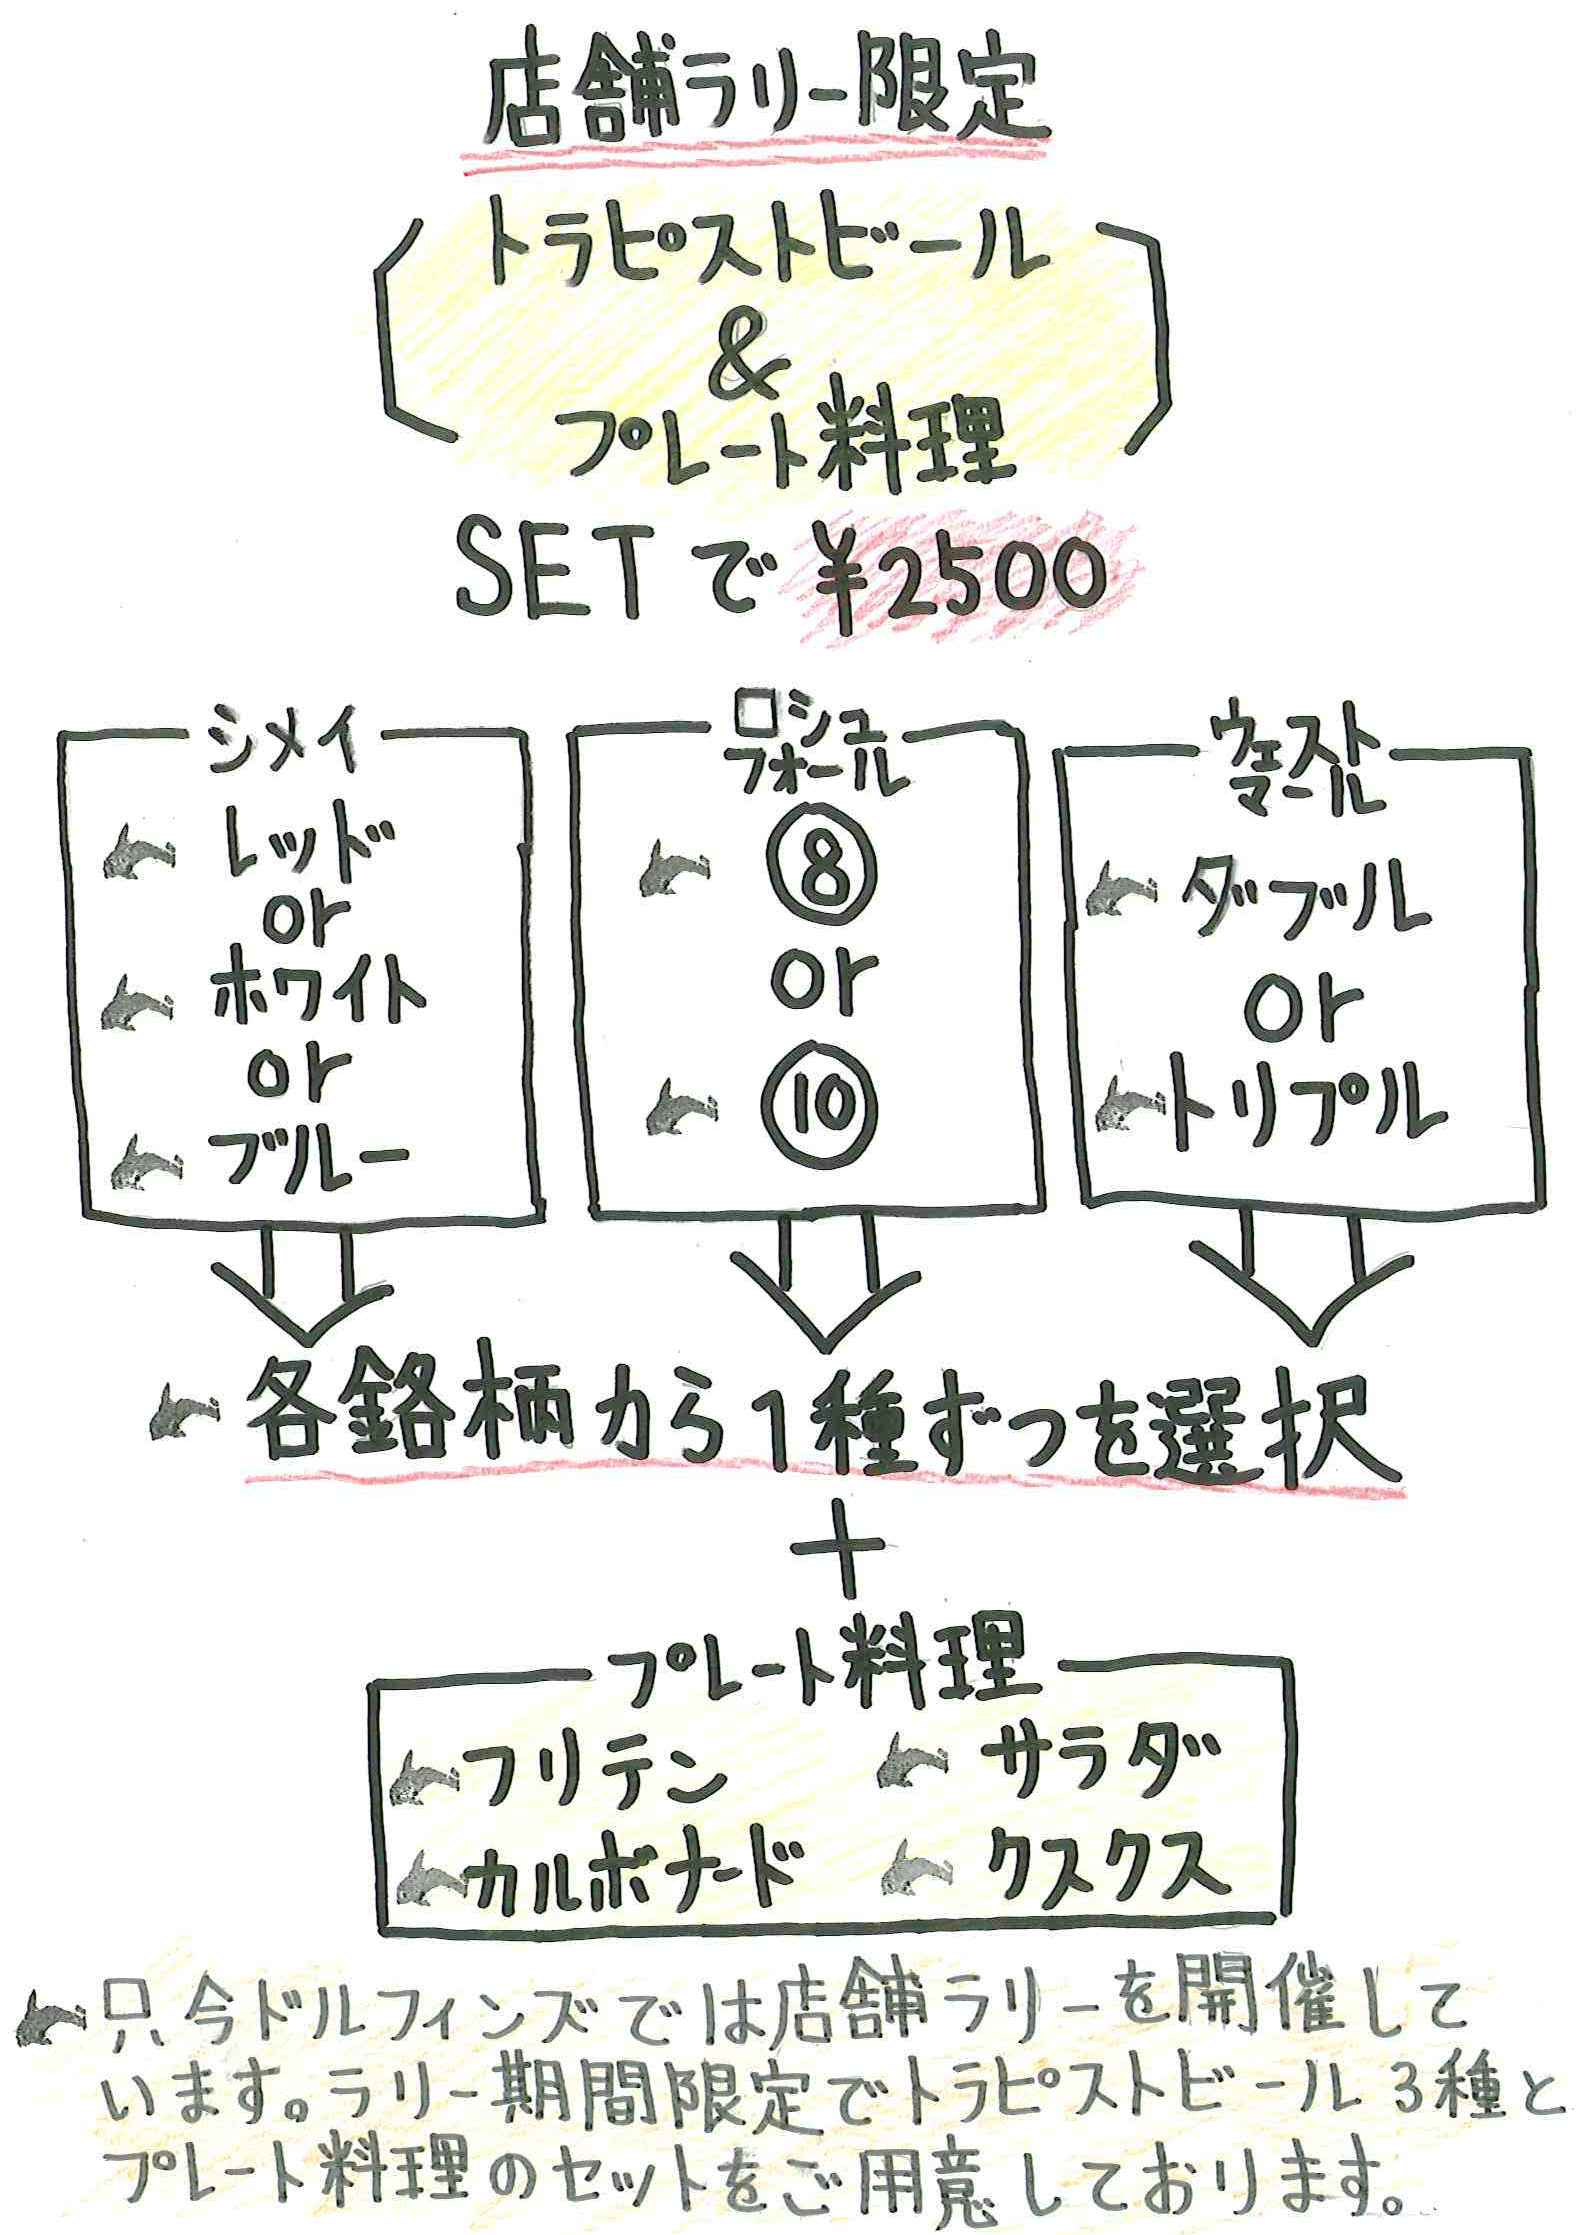 店舗ラリー限定
トラピストビール
&
プレート料理
SETで ¥2500
シメイ
レッド
or
ホワイト
or
ブルー
ロシュ
フォール
⑧
or
⑩
ウェスト
マール
ダブル
or
トリプル
各銘柄から1種ずつを選択
+
プレート料理
フリテン サラダ
カルボナード クスクス
只今ドルフィンズでは店舗ラリーを開催して
います。ラリー期間限定でトラピストビール3種と
プレート料理のセットをご用意しております。